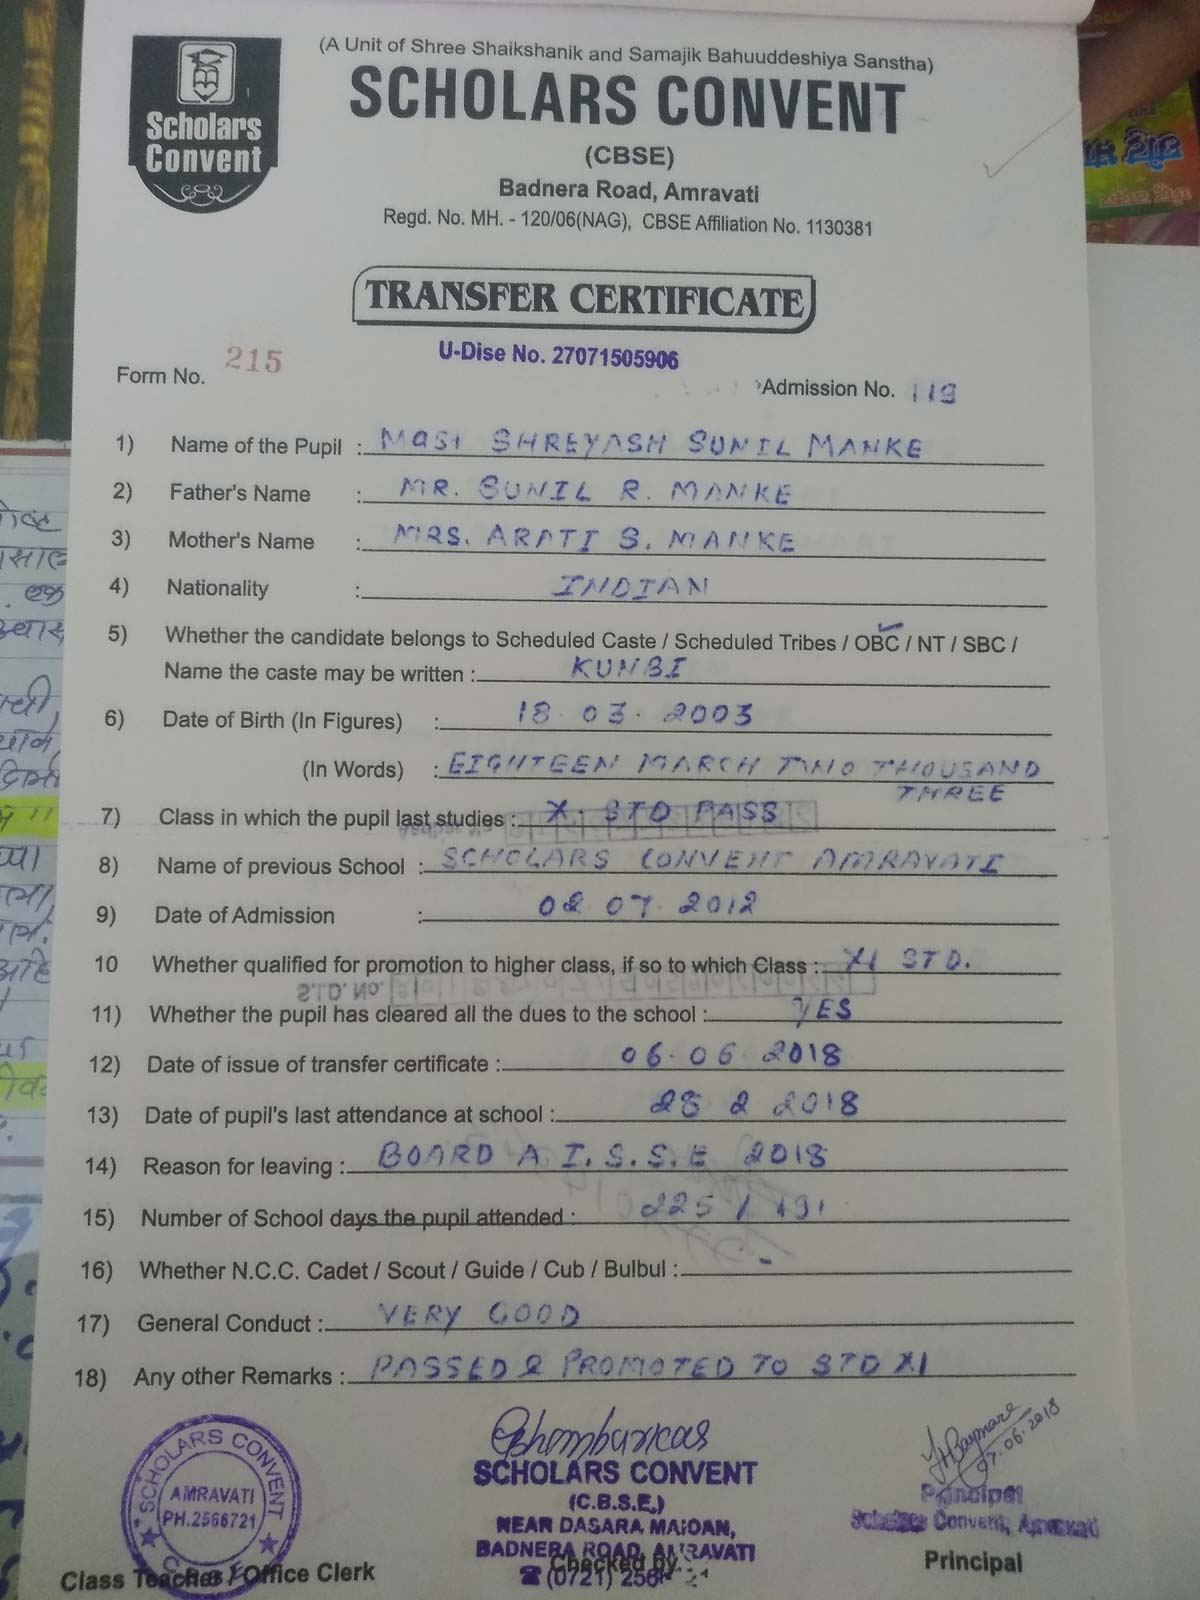 (A Unit of Shree Shaikshanik and Samajik Bahuuddeshiya Sanstha)
Scholars
Convent
SCHOLARS CONVENT
(CBSE)
Badnera Road, Amravati
Regd. No. MH. - 120/06(NAG), CBSE Affiliation No. 1130381
TRANSFER CERTIFICATE
U-Dise No. 27071505906
Form No. 215
Admission No. 119
1) Name of the Pupil : MAST SHREYASH SUNIL MANKE
2) Father's Name : MR. SUNIL R. MANKE
3) Mother's Name : MRS. ARATI S. MANKE
4) Nationality : INDIAN
5) Whether the candidate belongs to Scheduled Caste / Scheduled Tribes / OBC / NT / SBC /
Name the caste may be written : KUNBI
6) Date of Birth (In Figures) : 18.03.2003
(In Words) : EIGHTEEN MARCH TWO THOUSAND
THREE
7) Class in which the pupil last studies : X. STD PASS
8) Name of previous School : SCHOLARS CONVENT AMRAVATI
9) Date of Admission : 02.07.2012
10 Whether qualified for promotion to higher class, if so to which Class : XI STD.
11) Whether the pupil has cleared all the dues to the school : YES
12) Date of issue of transfer certificate : 06.06.2018
13) Date of pupil's last attendance at school : 28 2 2018
14) Reason for leaving : BOARD A I.S.S.E 2018
15) Number of School days the pupil attended : 225 / 191
16) Whether N.C.C. Cadet / Scout / Guide / Cub / Bulbul : -
17) General Conduct : VERY GOOD
18) Any other Remarks : PASSED & PROMOTED TO STD XI
SCHOLARS CONVENT
AMRAVATI
PH.2566721
SCHOLARS CONVENT
(C.B.S.E.)
NEAR DASARA MAIDAN,
BADNERA ROAD, AMRAVATI
(0721)
07.06.2018
Principal
Scholars Convent, Amravati
Class Teacher / Office Clerk
Checked by
Principal